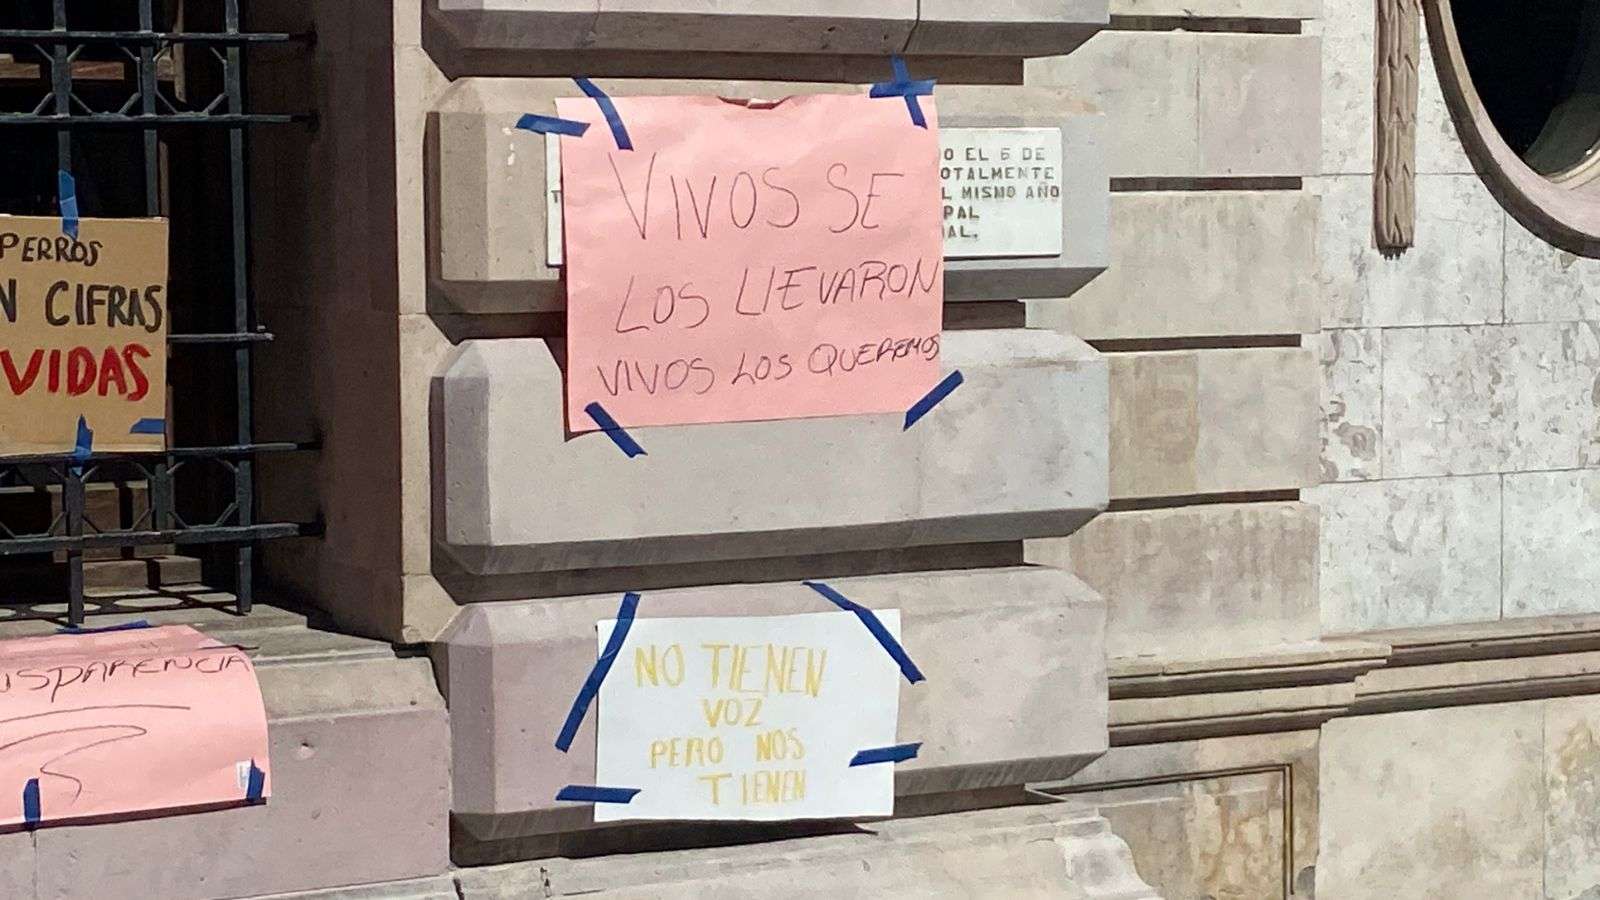 PERROS
N CIFRAS
VIDAS
VIVOS SE
LOS LLEVARON
VIVOS LOS QUEREMOS
O EL 6 DE
OTALMENTE
L MISMO AÑO
PAL
AL.
NSPARENCIA
NO TIENEN
VOZ
PERO NOS
TIENEN